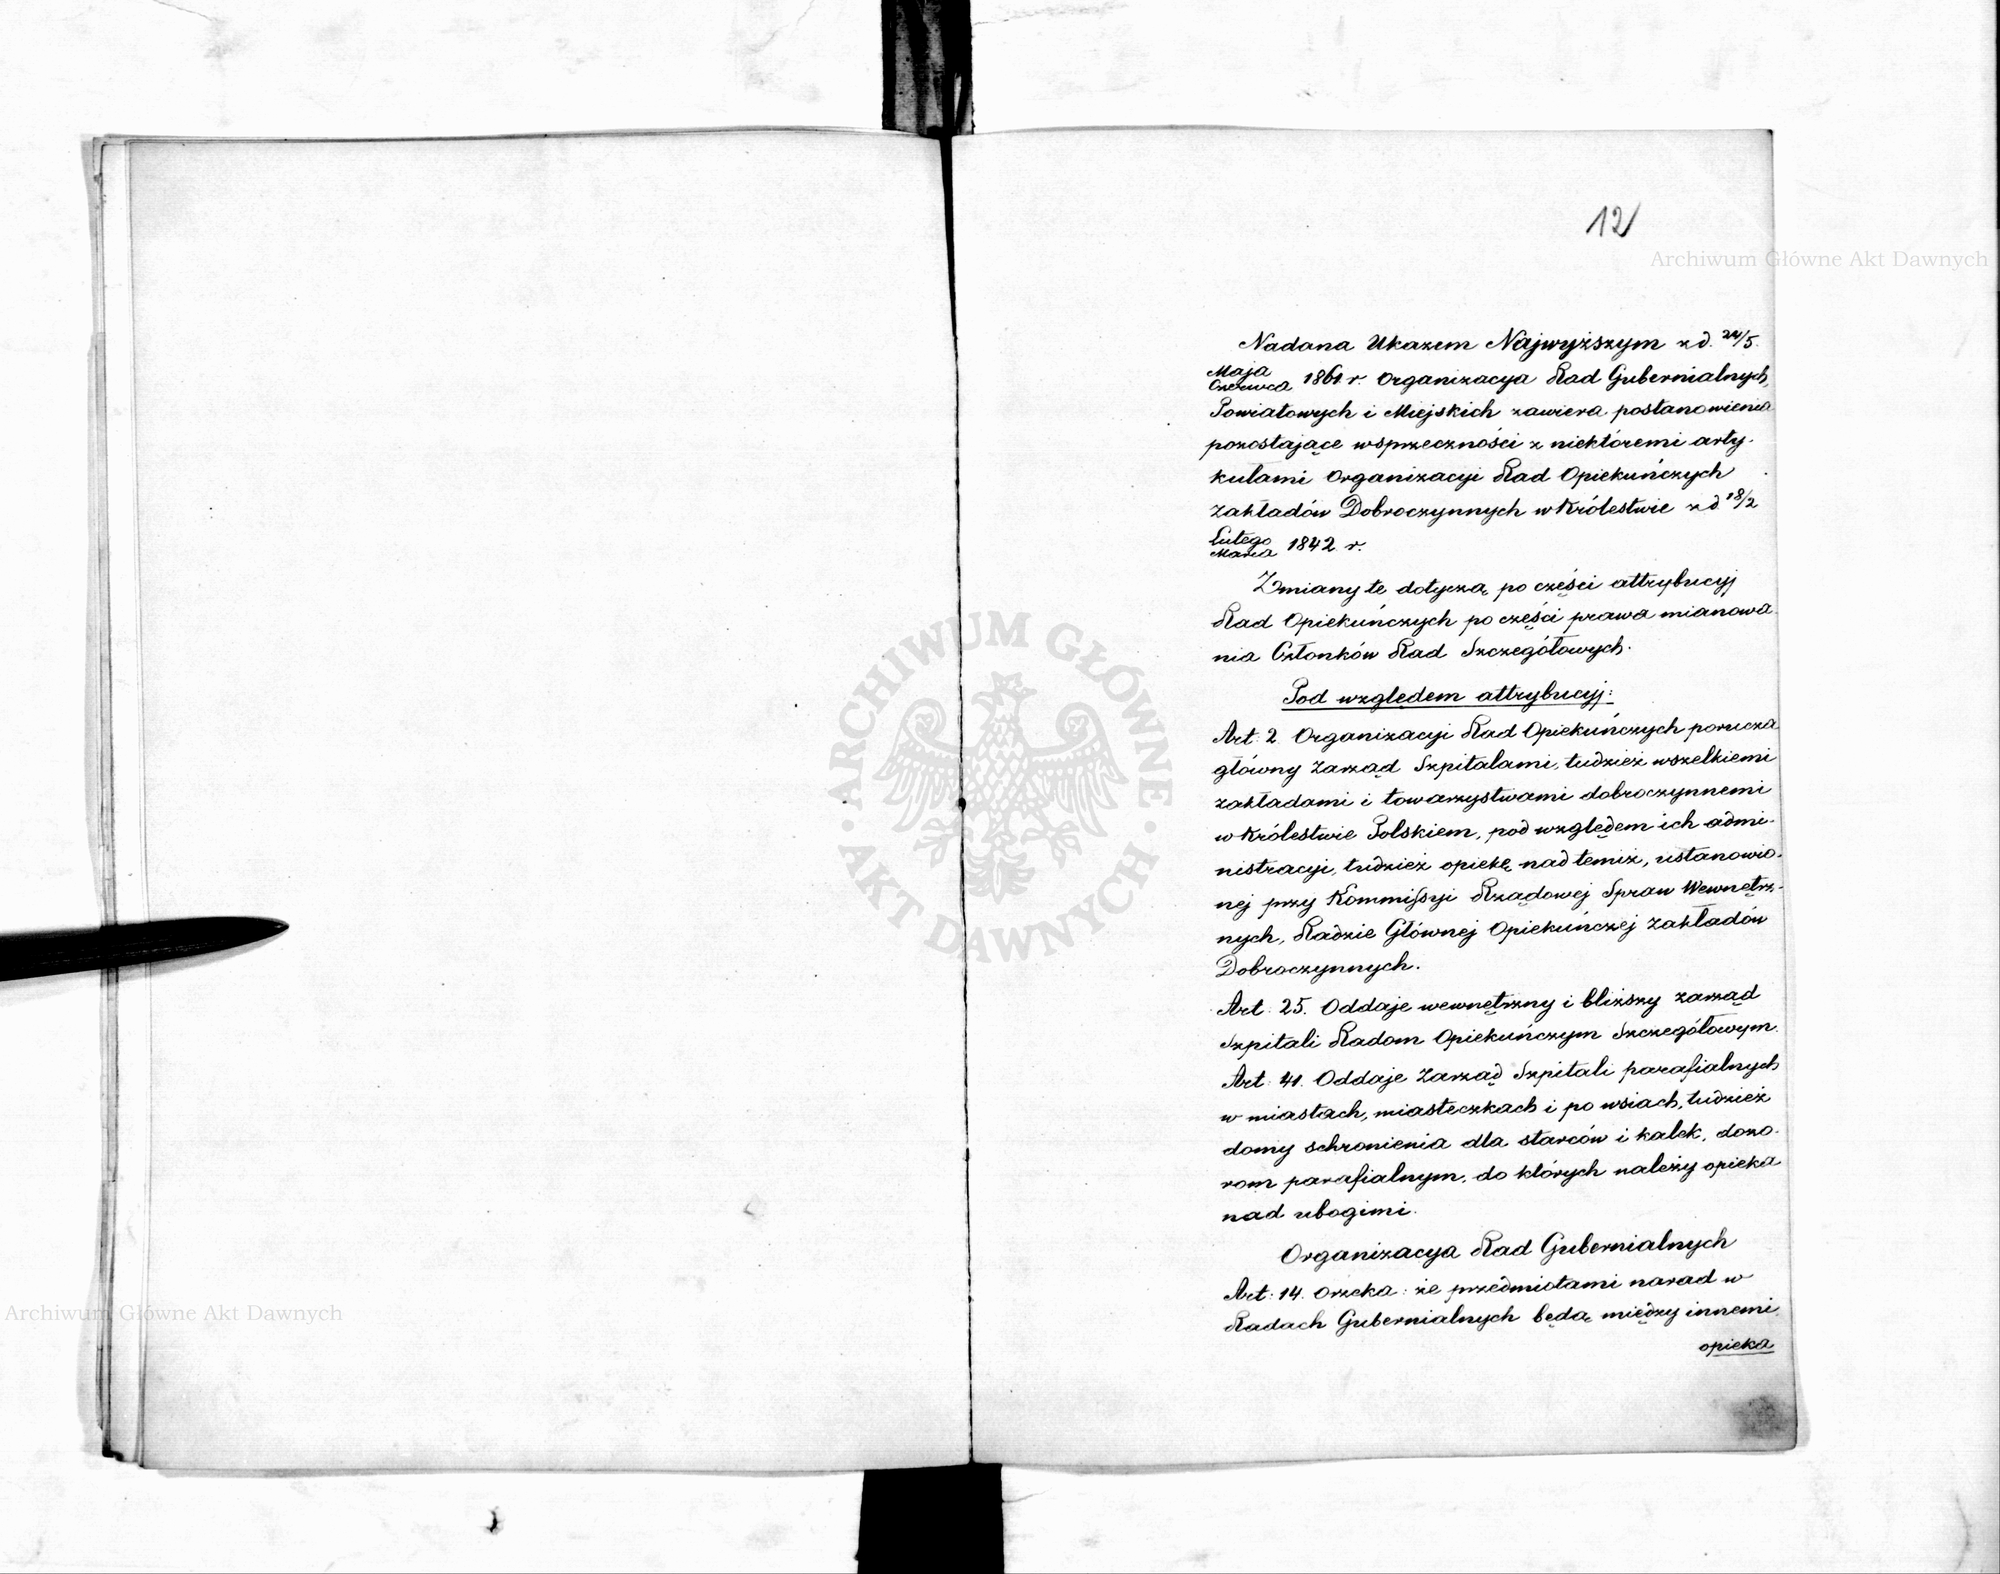 12
Nadana Ukazem Najwyższym z d. 24/5.
Maja
Czerwca 1861 r. Organizacya Rad Gubernialnych,
Powiatowych i Miejskich zawiera postanowienia
pozostające wsprzeczności z niektóremi arty-
kułami Organizacyi Rad Opiekuńczych
Zakładów Dobroczynnych w Królestwie z d. 18/2
Lutego
Marca 1842 r.
Zmiany te dotyczą, po części attrybucyj
Rad Opiekuńczych po części prawa mianowa-
nia Członków Rad Szczegółowych.
Pod względem attrybucyj:
Art: 2. Organizacyi Rad Opiekuńczych porucza
główny Zarząd Szpitalami, tudzież wszelkiemi
zakładami i towarzystwami dobroczynnemi
w Królestwie Polskiem, pod względem ich admi-
nistracyi, tudzież opiekę nad temiż, ustanowio-
nej przy Kommissyi Rządowej Spraw Wewnętrz-
nych, Radzie Głównej Opiekuńczej Zakładów
Dobroczynnych.
Art: 25. Oddaje wewnętrzny i bliższy zarząd
Szpitali Radom Opiekuńczym Szczegółowym.
Art: 41. Oddaje Zarząd Szpitali parafialnych
w miastach, miasteczkach i po wsiach, tudzież
domy schronienia dla starców i kalek, dozo-
rom parafialnym, do których należy opieka
nad ubogimi.
Organizacya Rad Gubernialnych
Art: 14. orzeka: że przedmiotami narad w
Radach Gubernialnych będą między innemi
opieka
Archiwum Główne Akt Dawnych
Archiwum Główne Akt Dawnych
ARCHIWUM GŁÓWNE
AKT DAWNYCH